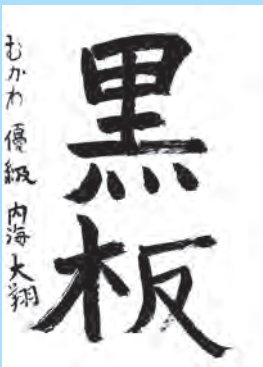 黒板
むかわ 優級 内海大翔